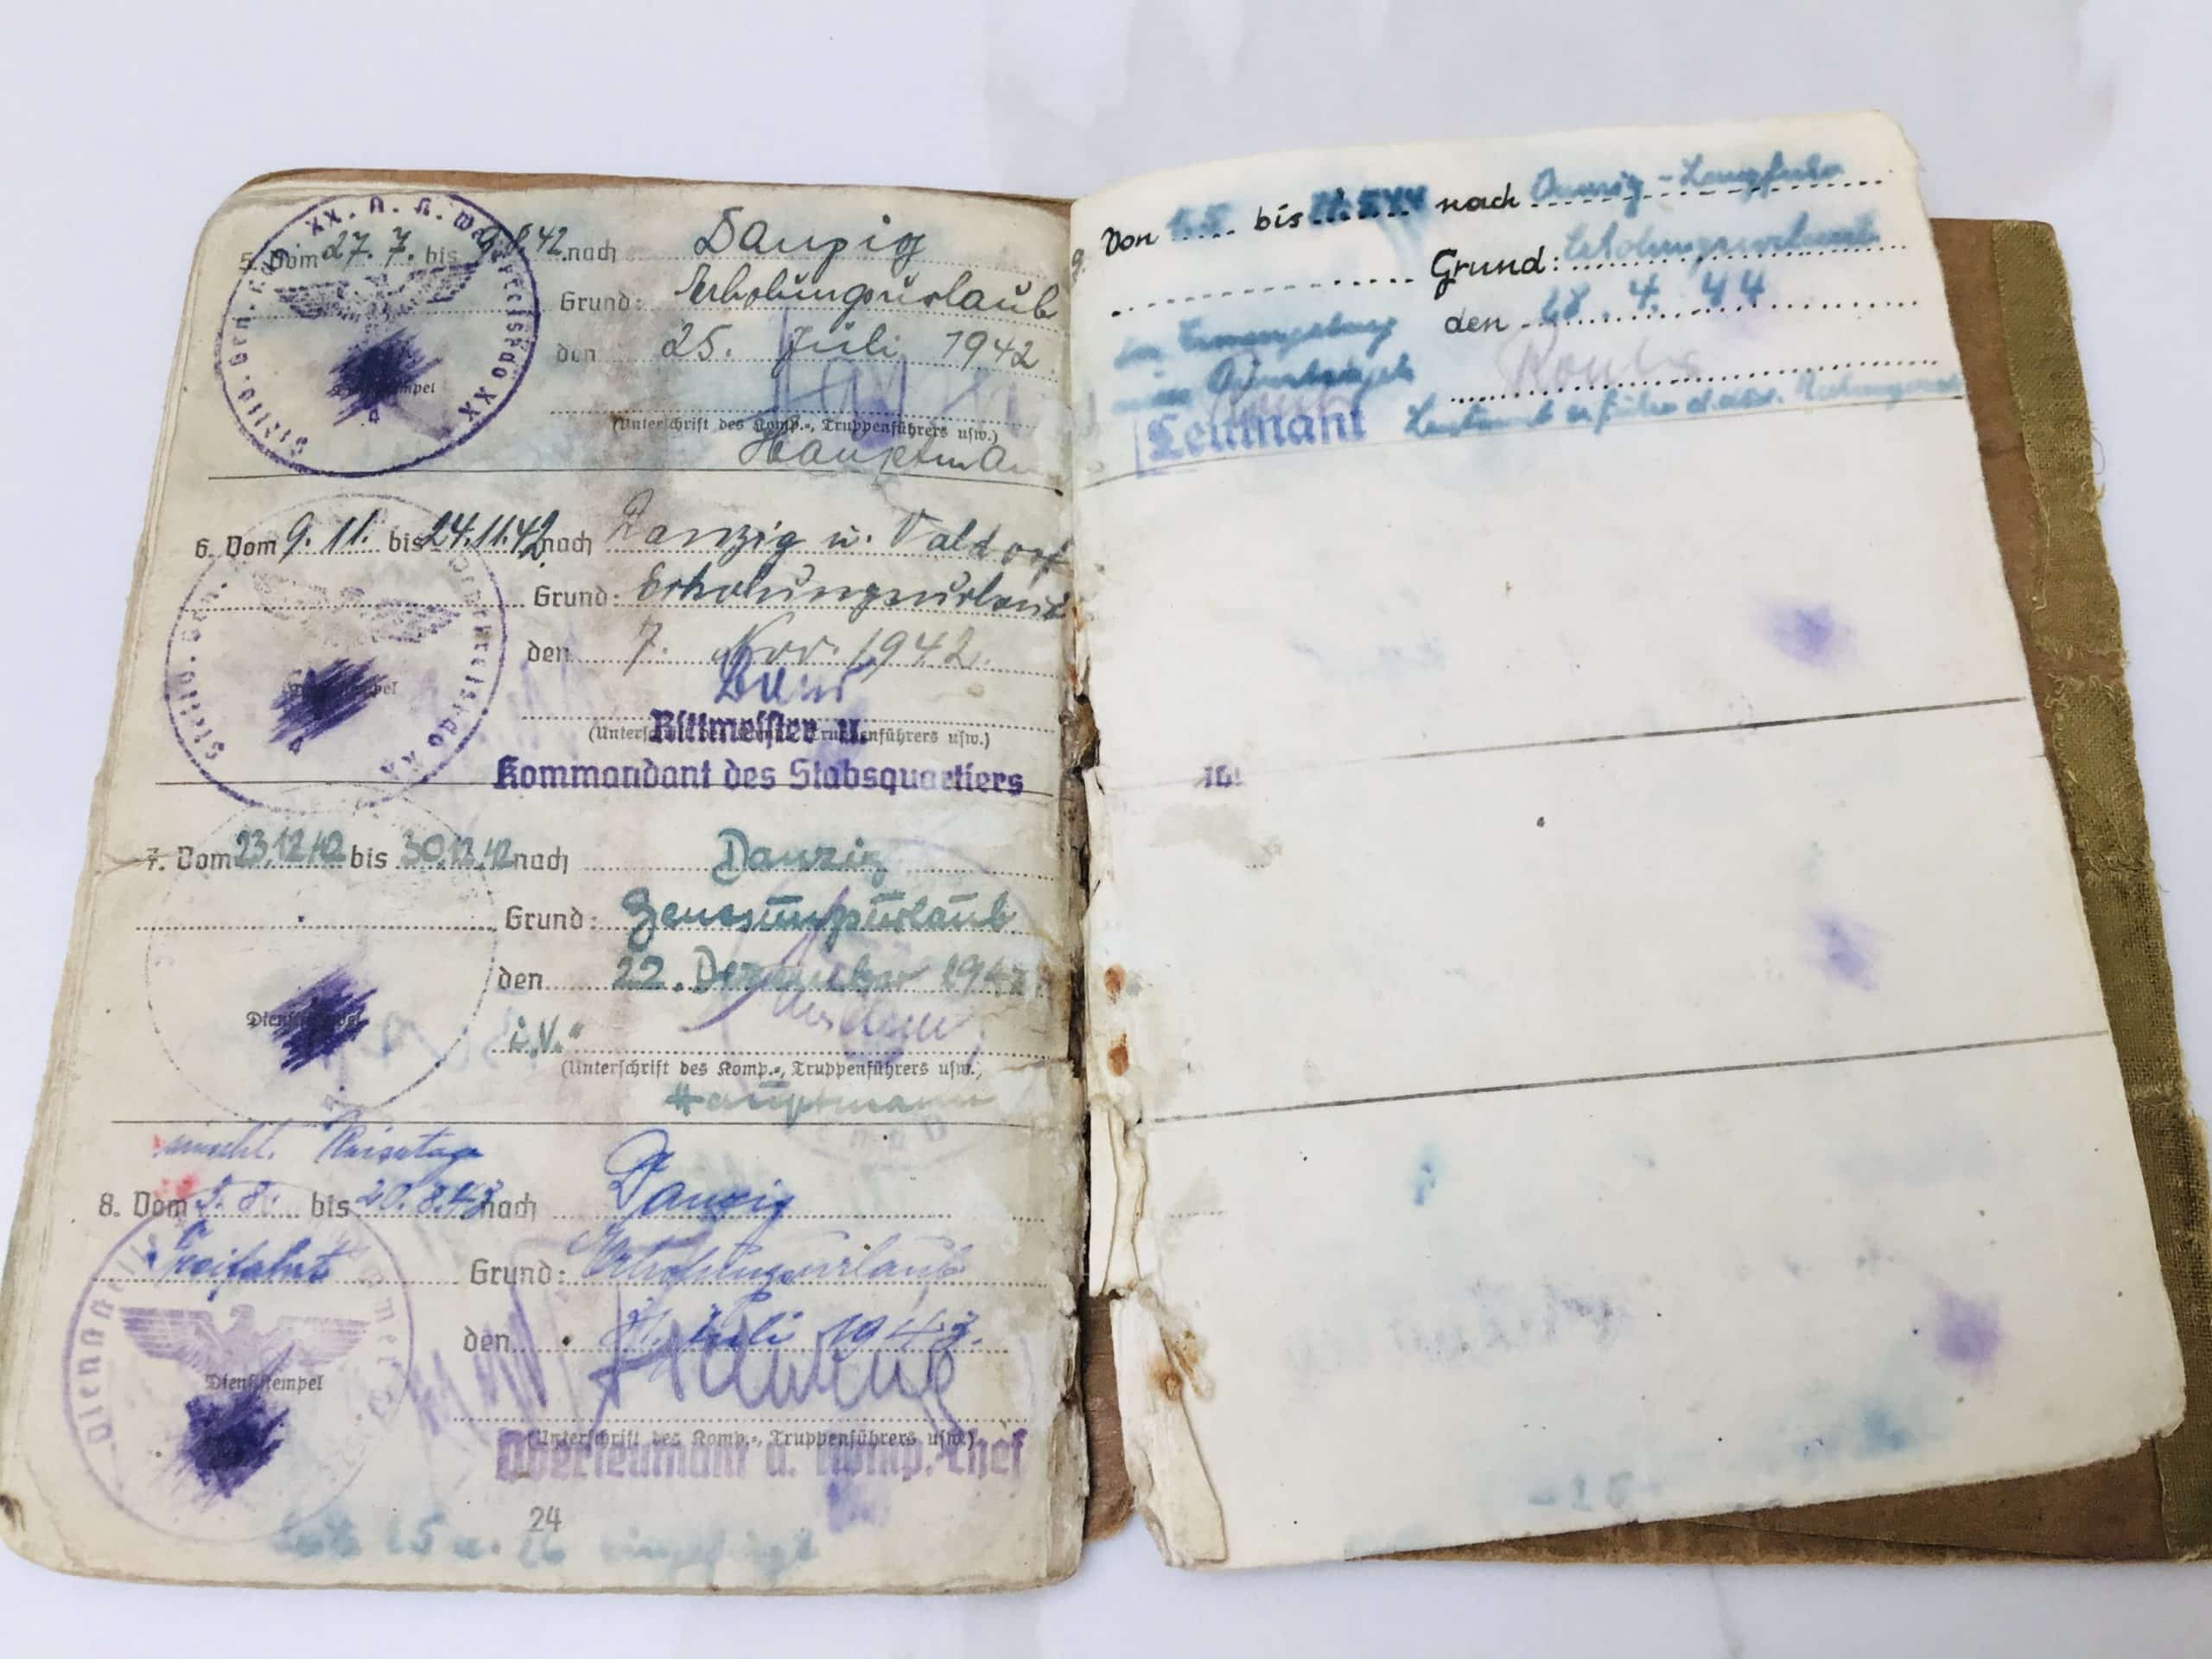 5. Vom 27. 7. bis 9.8.42 nach Danzig
Grund: Erholungsurlaub
den 25. Juli 1942
(Unterschrift des Komp.-, Truppenführers usw.)
Hauptmann
6. Vom 9. 11. bis 24.11.42 nach Danzig u. Valdorf
Grund: Erholungsurlaub
den 7. Nov. 1942.
Rittmeister u.
(Unterschrift des Komp.-, Truppenführers usw.)
Kommandant des Stabsquartiers
7. Vom 23.12.42 bis 30.12.42 nach Danzig
Grund: Genesungsurlaub
den 22. Dezember 1942
Dienststempel
i.V.
(Unterschrift des Komp.-, Truppenführers usw.)
Hauptmann
Reisetage
8. Vom 3.8. bis 20.8.43 nach Danzig
Freifahrt Grund: Erholungsurlaub
den 31. Juli 1943.
Dienststempel
(Unterschrift des Komp.-, Truppenführers usw.)
Oberleutnant u. Komp.-Chef
24
Seite 25 u. 26 eingefügt
9. Von 1.5. bis 21.5.44 nach Danzig-Langfuhr
Grund: Erholungsurlaub
den 28. 4. 44
in Ermangelung
eines Dienstsiegels
Leutnant
Leutnant u. Führer d.
10.
-25-